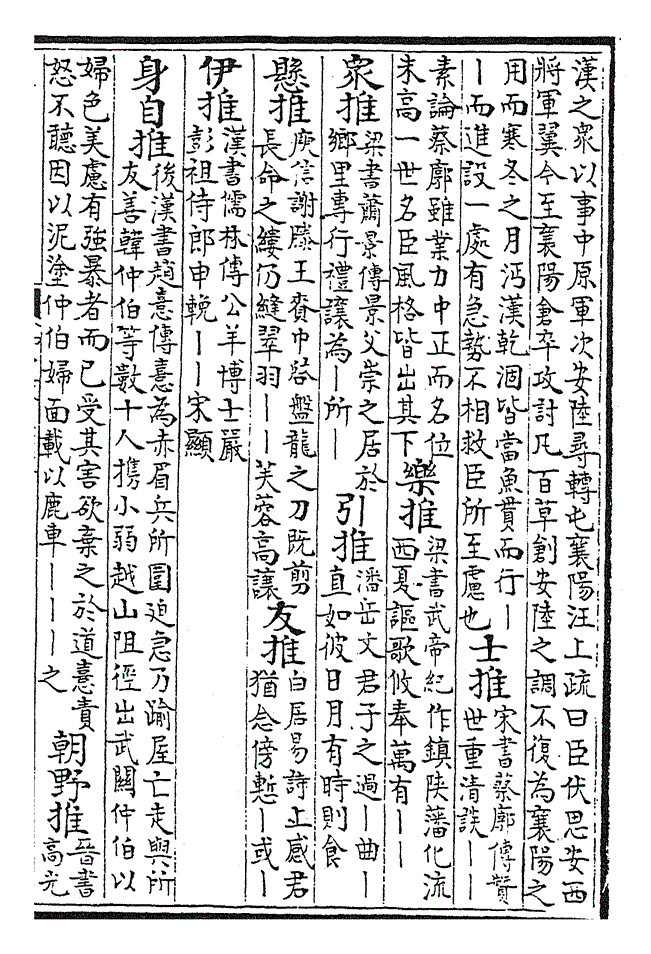 漢之衆以事中原軍次安陸尋轉屯襄陽汪上疏曰臣伏思安西
將軍翼今至襄陽倉卒攻討凡百草創安陸之調不復為襄陽之
用而寒冬之月沔漢乾涸皆當魚貫而行丨
丨而進設一處有急勢不相救臣所至慮也
士推
宋書蔡廓傳贊
世重清談丨丨
素論蔡廓雖業力中正而名位
未高一世名臣風格皆出其下
樂推
梁書武帝紀作鎮陝藩化流
西夏謳歌攸奉萬有丨丨
衆推
梁書蕭景傳景父崇之居於
鄉里專行禮讓為丨所丨
引推
潘岳文君子之過丨曲丨
直如彼日月有時則食
懸推
庾信謝滕王賚巾啓盤龍之刀既剪
長命之縷仍縫翠羽丨丨芙蓉高讓
友推
白居易詩上感君
猶念傍慙丨或丨
伊推
漢書儒林傳公羊博士嚴
彭祖侍郎申輓丨丨宋顯
身自推
後漢書趙憙傳憙為赤眉兵所圍迫急乃踰屋亡走與所
友善韓仲伯等數十人攜小弱越山阻徑出武關仲伯以
婦色美慮有強暴者而已受其害欲棄之於道憙責
怒不聽因以泥塗仲伯婦面載以鹿車丨丨丨之
朝野推
晉書
高光